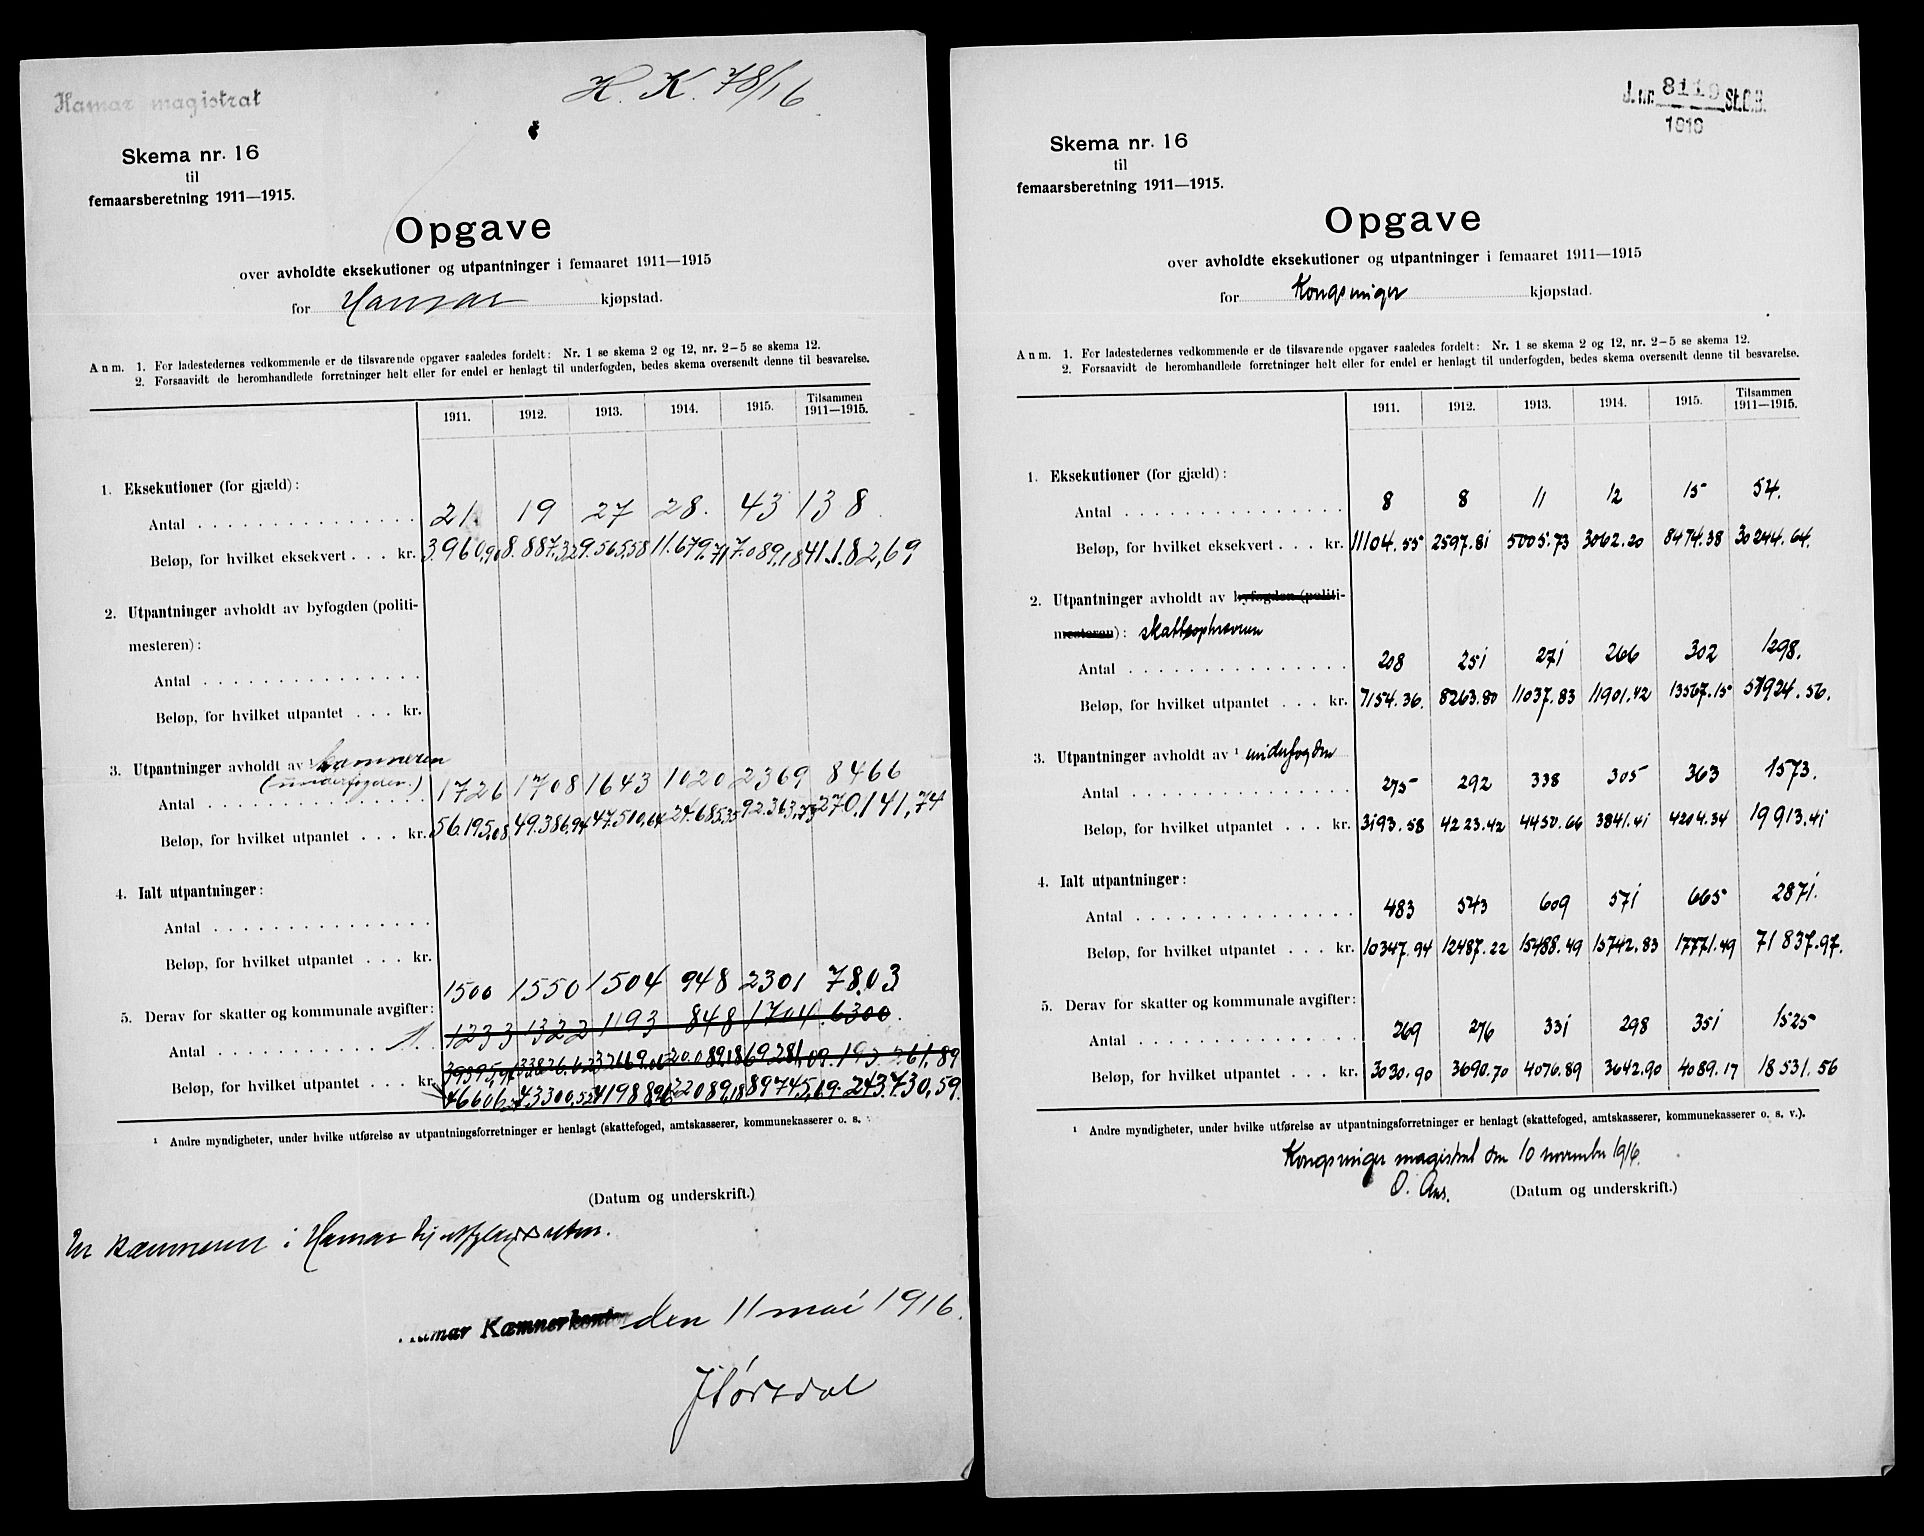 Hamar magistrat
H. K. 78/16
Skema nr. 16
til
femaarsberetning 1911—1915.
Opgave
over avholdte eksekutioner og utpantninger i femaaret 1911—1915
for Hamar kjøpstad.
Anm. 1. For ladestedernes vedkommende er de tilsvarende opgaver saaledes fordelt: Nr. 1 se skema 2 og 12, nr. 2—5 se skema 12.
2. Forsaavidt de heromhandlede forretninger helt eller for endel er henlagt til underfogden, bedes skema oversendt denne til besvarelse.
1911. 1912. 1913. 1914. 1915. Tilsammen
1911—1915.
1. Eksekutioner (for gjæld):
Antal 21 19 27 28. 43 138
Beløp, for hvilket eksekvert . . . kr. 3.960,90 8.887,32 9.565,58 11.679,71 7.089,18 41.182,69
2. Utpantninger avholdt av byfogden (politi-
mesteren):
Antal
Beløp, for hvilket utpantet . . . kr.
3. Utpantninger avholdt av ¹ kæmneren
(underfogden.)
Antal 1726 1708 1643 1020 2369 8466
Beløp, for hvilket utpantet . . . kr. 56.195,08 49.386,94 47.510,64 24.685,35 92.363,73 270.141,74
4. Ialt utpantninger:
Antal
Beløp, for hvilket utpantet . . . kr.
1500 1550 1504 948 2301 7803
5. Derav for skatter og kommunale avgifter:
Antal 1233 1322 1193 848 1704 6300.
Beløp, for hvilket utpantet . . . kr.
43300,52 41988,96 22089,18 89745,69 243.730,59.
¹ Andre myndigheter, under hvilke utførelse av utpantningsforretninger er henlagt (skattefoged, amtskasserer, kommunekasserer o. s.
(Datum og underskrift.)
kæmneren i Hamar
Hamar Kæmnerkontor den 11 mai 1916.
J.nr. 8119 St.C.B.
1916
Skema nr. 16
til
femaarsberetning 1911—1915.
Opgave
over avholdte eksekutioner og utpantninger i femaaret 1911—1915
for Kongsvinger kjøpstad.
Anm. 1. For ladestedernes vedkommende er de tilsvarende opgaver saaledes fordelt: Nr. 1 se skema 2 og 12, nr. 2—5 se skema 12.
2. Forsaavidt de heromhandlede forretninger helt eller for endel er henlagt til underfogden, bedes skema oversendt denne til besvarelse.
1911. 1912. 1913. 1914. 1915. Tilsammen
1911—1915.
1. Eksekutioner (for gjæld):
Antal 8 8 11 12 15 54.
Beløp, for hvilket eksekvert . . . kr. 11104.55 2597.81 5005.73 3062.20 8474.38 30244.64.
2. Utpantninger avholdt av byfogden (politi-
mesteren): skatteopkræveren
Antal 208 251 271 266 302 1298.
Beløp, for hvilket utpantet . . . kr. 7154.36. 8263.80 11037.83 11901.42 13567.15 51924.56.
3. Utpantninger avholdt av ¹ underfogden
Antal 275 292 338 305 363 1573.
Beløp, for hvilket utpantet . . . kr. 3193.58 4223.42 4450.66 3841.41 4204.34 19913.41
4. Ialt utpantninger:
Antal 483 543 609 571 665 2871.
Beløp, for hvilket utpantet . . . kr. 10347.94 12487.22 15488.49 15742.83 17771.49 71837.97.
5. Derav for skatter og kommunale avgifter:
Antal 269 276 331 298 351 1525
Beløp, for hvilket utpantet . . . kr. 3030.90 3690.70 4076.89 3642.90 4089.17 18531.56
¹ Andre myndigheter, under hvilke utførelse av utpantningsforretninger er henlagt (skattefoged, amtskasserer, kommunekasserer o. s. v.).
Kongsvinger magistrat den 10 november 1916.
O. Aas.
(Datum og underskrift.)